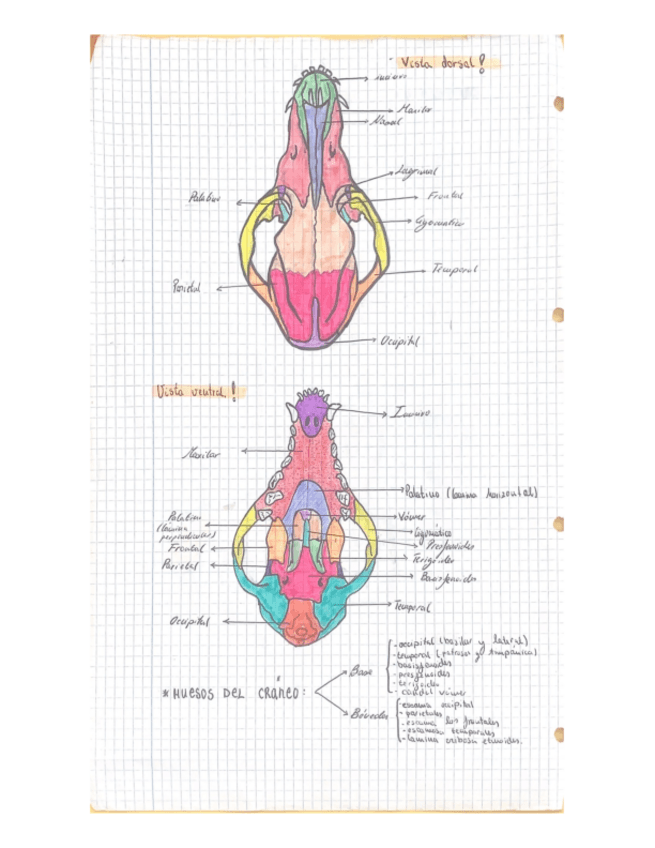 Vista dorsal!
Incisivo
Maxilar
Nasal
Lagrimal
Palatino
Frontal
Cigomatico
Temporal
Parietal
Occipital
Vista ventral!
Incisivo
Maxilar
Palatino (lamina horizontal)
Palatino
(lamina
perpendicular)
Vómer
Cigomático
Presfenoides
Frontal
Terigoides
Parietal
Basisfenoides
Temporal
Occipital
* HUESOS DEL CRÁNEO:
Base
- occipital (basilar y lateral)
- temporal (petrosa y timpánica)
- basisfenoides
- presfenoides
- terigoides
- caudal vómer
Bóveda
- escama occipital
- parietales
- escama los frontales
- escamosa temporales
- lamina cribosa etmoides.